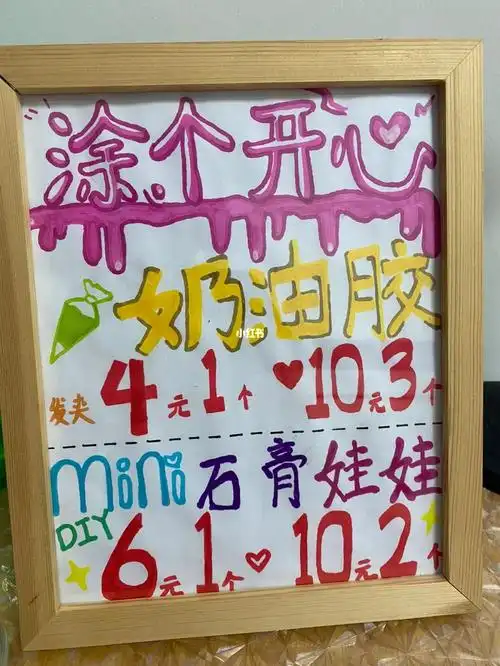 涂个开心
奶油胶
小红书
发夹 4元1个 ♥10元3个
mini 石膏娃娃
DIY
6元1个 ♡ 10元2个